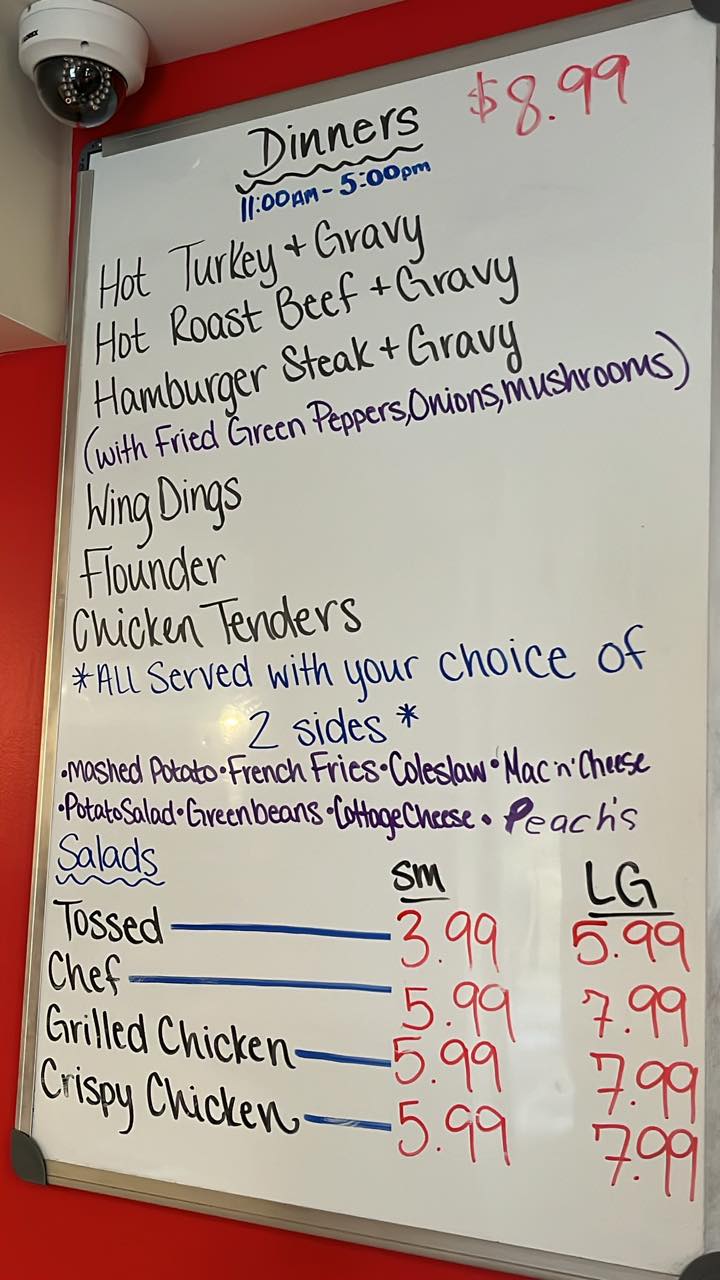 Dinners $8.99
11:00AM - 5:00pm
Hot Turkey + Gravy
Hot Roast Beef + Gravy
Hamburger Steak + Gravy
(with Fried Green Peppers, Onions, mushrooms)
Wing Dings
Flounder
Chicken Tenders
*All Served with your choice of
2 sides *
•Mashed Potato•French Fries•Coleslaw•Mac'n'Cheese
•Potato Salad•Greenbeans•Cottage Cheese• Peach's
Salads SM LG
Tossed 3.99 5.99
Chef 5.99 7.99
Grilled Chicken 5.99 7.99
Crispy Chicken 5.99 7.99